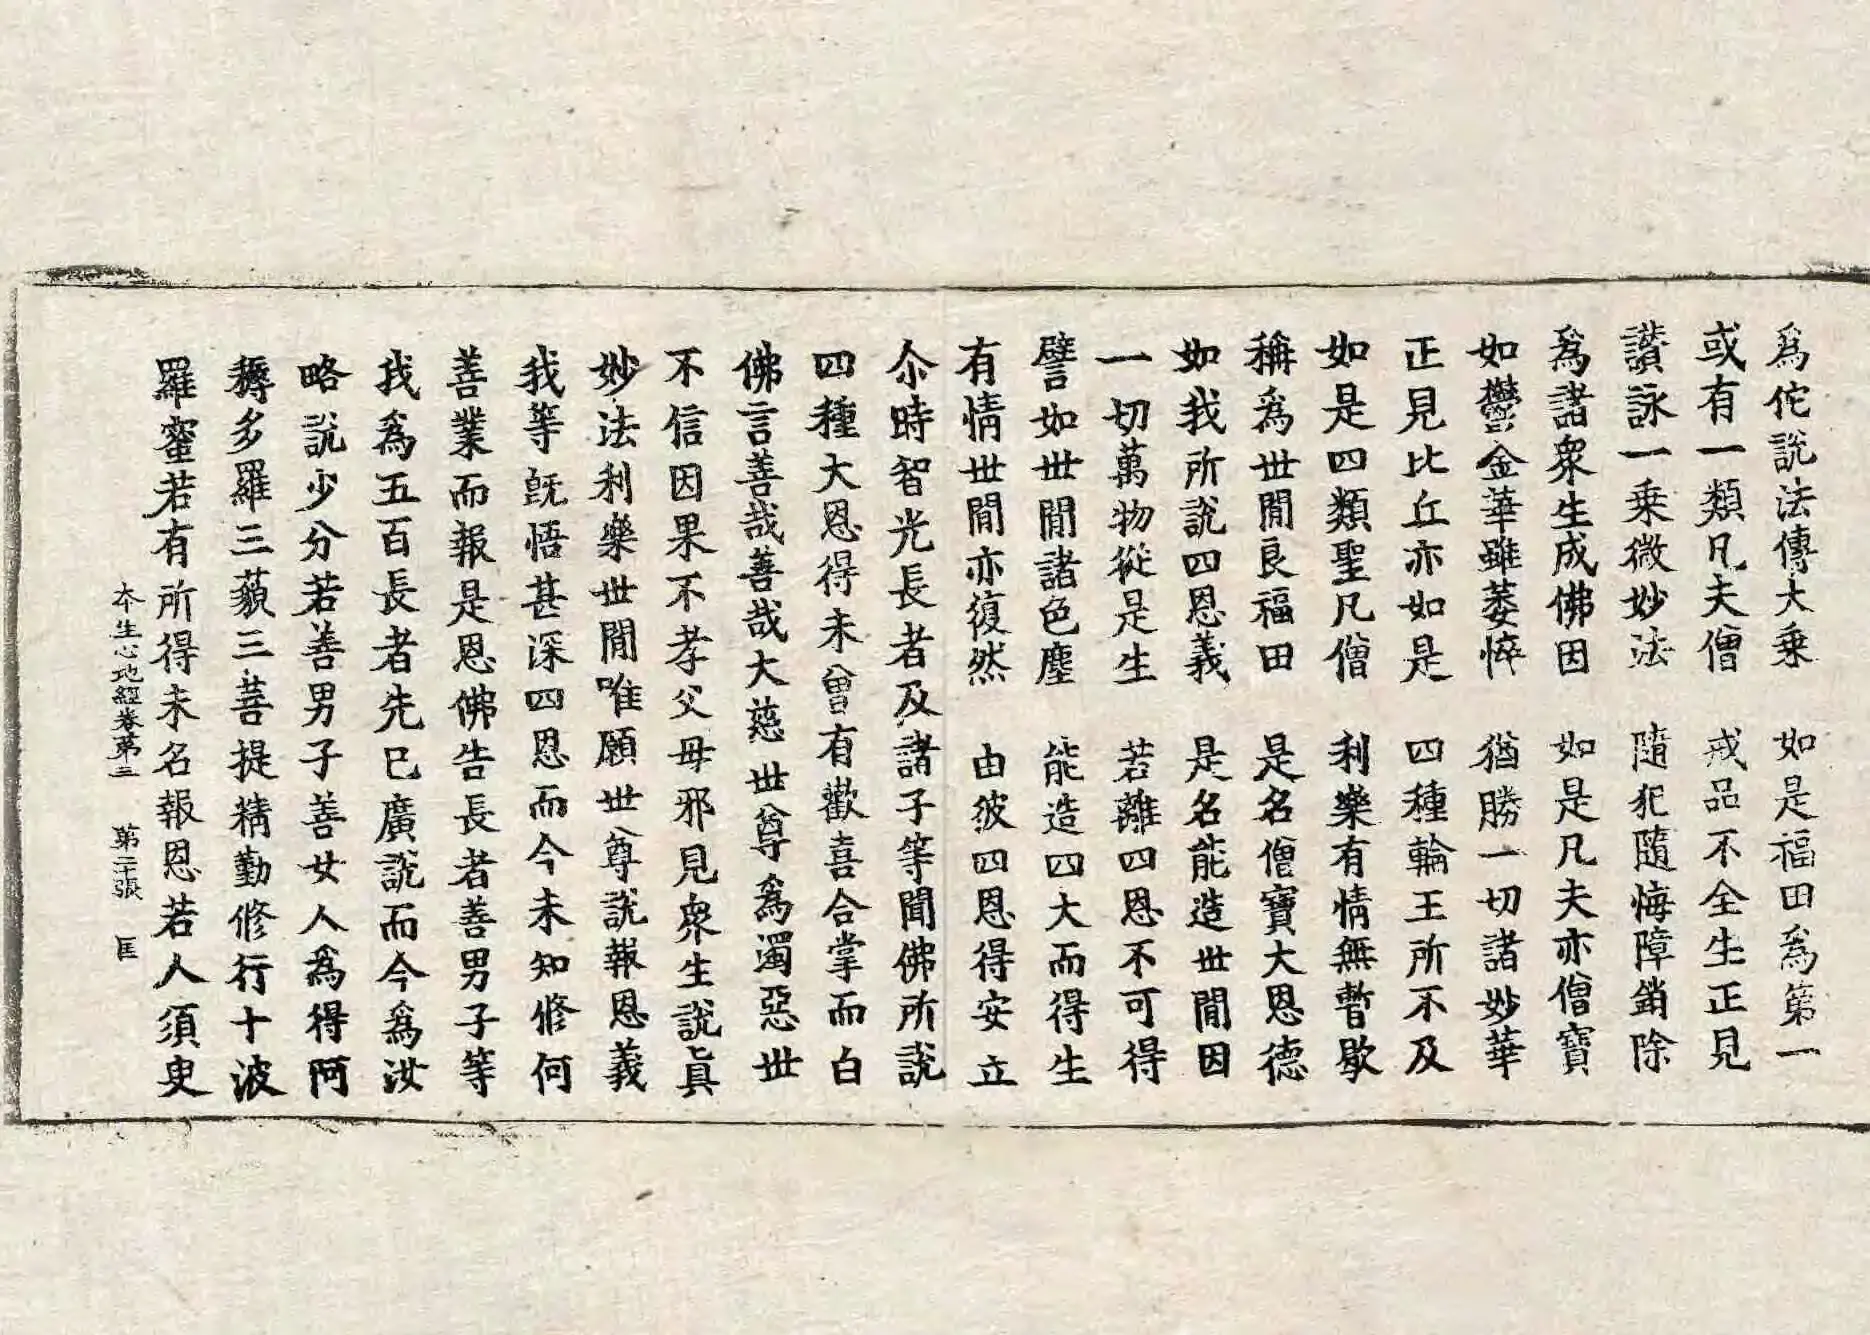 爲佗說法傳大乗　如是福田爲第一
或有一類凡夫僧　戒品不全生正見
讃詠一乗微妙法　隨犯隨悔障銷除
爲諸衆生成佛因　如是凡夫亦僧寶
如鬱金華雖萎悴　猶勝一切諸妙華
正見比丘亦如是　四種輪王所不及
如是四類聖凡僧　利樂有情無暫歇
稱爲世閒良福田　是名僧寶大恩德
如我所說四恩義　是名能造世閒因
一切萬物從是生　若離四恩不可得
譬如世閒諸色塵　能造四大而得生
有情世閒亦復然　由彼四恩得安立
尒時智光長者及諸子等聞佛所說
四種大恩得未曾有歡喜合掌而白
佛言善哉善哉大慈世尊爲濁惡世
不信因果不孝父母邪見衆生說眞
妙法利樂世閒唯願世尊說報恩義
我等旣悟甚深四恩而今未知修何
善業而報是恩佛告長者善男子等
我爲五百長者先已廣說而今爲汝
略說少分若善男子善女人爲得阿
耨多羅三藐三菩提精勤修行十波
羅蜜若有所得未名報恩若人須臾
本生心地經卷第三　第二十張　匡